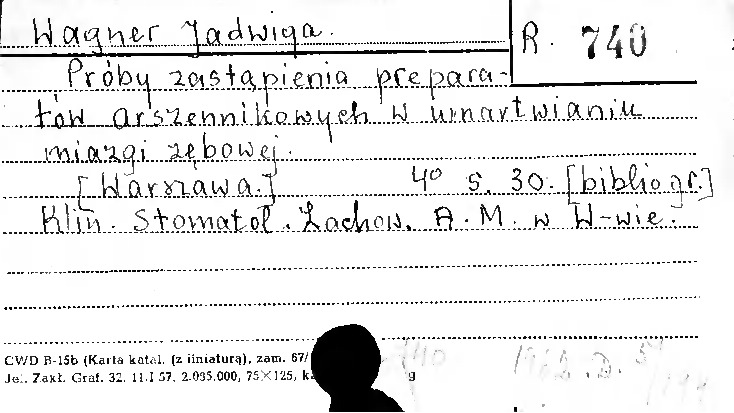 Wagner Jadwiga.
R. 740
Próby zastąpienia prepara-
tów arszennikowych w umartwianiu
miazgi zębowej.
[Warszawa.] 4° s. 30. [bibliogr.]
Klin. Stomatol. Zachow. A.M. w W-wie.
CWD B-15b (Karta katal. (z liniaturą), zam. 67/
740
Jel. Zakł. Graf. 32. 11.I 57. 2.095.000, 75×125, g